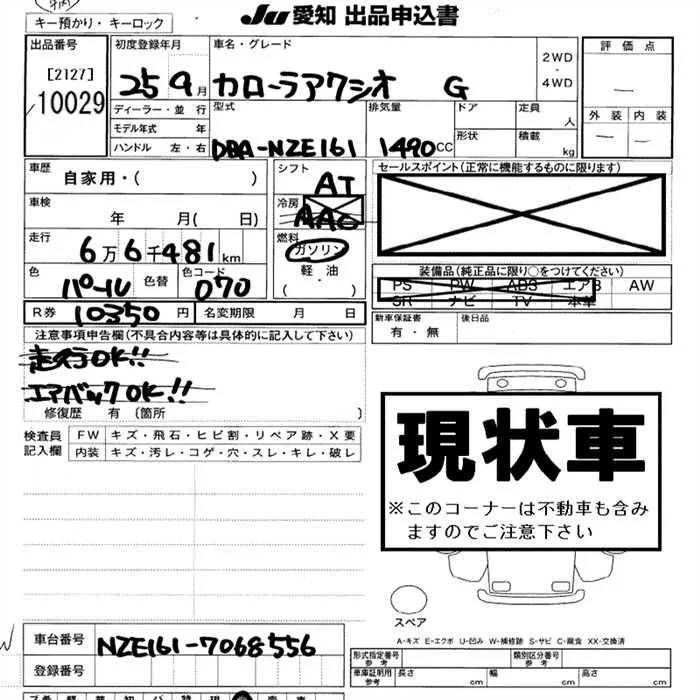 Ju 愛知 出品申込書
キー預かり・キーロック
出品番号
[2127]
10029
初度登録年月
25 9月
車名・グレード
カローラアクシオ G
2WD・4WD
評価点
—
外装 内装
— —
ディーラー・並行
モデル年式 年
ハンドル 左・右
型式
DBA-NZE161
排気量
1490CC
ドア
形状
定員 人
積載 kg
車歴
自家用・( )
車検
年 月( 日)
走行
6万6千481km
色
パール
色替
色コード
070
シフト
AT
冷房
AAC
燃料
ガソリン
軽・油
( ・ )
セールスポイント(正常に機能するものに限ります)
装備品(純正品に限り○をつけてください)
PS PW ABS エアB AW
SR ナビ TV 本革
R券 10350円 名変期限 月 日
新車保証書
有・無
後日品
注意事項申告欄(不具合内容等は具体的に記入して下さい)
走行OK!!
エアバックOK!!
修復歴 有 〔箇所 〕
検査員記入欄
FW キズ・飛石・ヒビ割・リペア跡・X要
内装 キズ・汚レ・コゲ・穴・スレ・キレ・破レ
現状車
※このコーナーは不動車も含み
ますのでご注意下さい
スペア
A-キズ E-エクボ U-凹み W-補修跡 S-サビ C-腐食 XX-交換済
車台番号 NZE161-7068556
登録番号
形式指定番号 参考
類別区分番号 参考
車庫証明用 参考
長さ cm 幅 cm 高さ cm